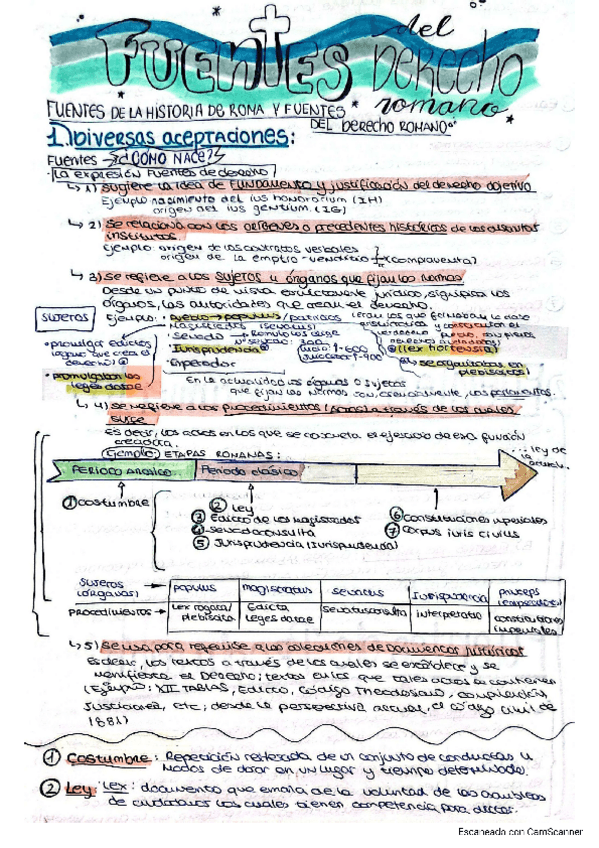 FUENTES del DERECHO romano
FUENTES DE LA HISTORIA DE ROMA Y FUENTES
DEL DERECHO ROMANO
1. DIVERSAS aceptaciones:
Fuentes → ¿CÓMO NACE?
La expresión Fuentes de derecho
↳ 1) Sugiere la idea de FUNDAMENTO y justificación del derecho objetivo
Ejemplo: nacimiento del ius honorarium (IH)
origen del ius gentium (IG)
↳ 2) Se relaciona con los orígenes o precedentes históricos de las distintas
institutos.
Ejemplo: origen de los contratos verbales
origen de la emptio-venditio (compraventa)
↳ 3) Se refiere a los SUJETOS u órganos que fijan las normas
Desde un punto de vista estrictamente jurídico, significa los
órganos, las autoridades que crean el derecho.
SUJETOS
Ejemplo: • pueblo → populus / patricios
Magistrados
• Senado → Rómulo los elige
Nº senado: 300
• Jurisprudencia
• Emperador
• promulgar edictos
• promulgaban las
leges datae
(lex hortensia)
se organizaba en
plebiscitos
En la actualidad los órganos o sujetos
que fijan las normas son, esencialmente, los parlamentos.
↳ 4) Se refiere a los procedimientos / formas a través de los cuales
surge
Es decir, los actos en los que se concreta el ejercicio de esa función
creadora.
Ejemplo: ETAPAS ROMANAS:
PERIODO ARCAICO
Periodo clásico
... ley de
① Costumbre
② Ley
③ Edicto de los magistrados
④ Senadoconsulta
⑤ Jurisprudencia (iurisprudencia)
⑥ Constituciones imperiales
⑦ Corpus iuris civilis
SUJETOS (órganos) → populus magistratus senatus Iurisprudencia princeps (emperadores)
PROCEDIMIENTOS → Lex rogata/ plebiscita Edicta leges datae senatusconsulta interpretatio constituciones imperiales
↳ 5) Se usa para referirse a las colecciones de Documentos jurídicos
Es decir, los textos a través de los cuales se exterioriza y se
manifiesta el Derecho; textos en los que tales actos se contienen
(Ejemplo: XII TABLAS, Edicto, Código Theodosiano, compilación
Justinianea, etc; desde la perspectiva actual, el código civil de
1881)
① Costumbre: Repetición reiterada de un conjunto de conductas u
modos de obrar en un lugar y tiempo determinado.
② Ley Lex: documento que emana de la voluntad de las asambleas
de ciudadanos los cuales tienen competencia para dictar.
Escaneado con CamScanner